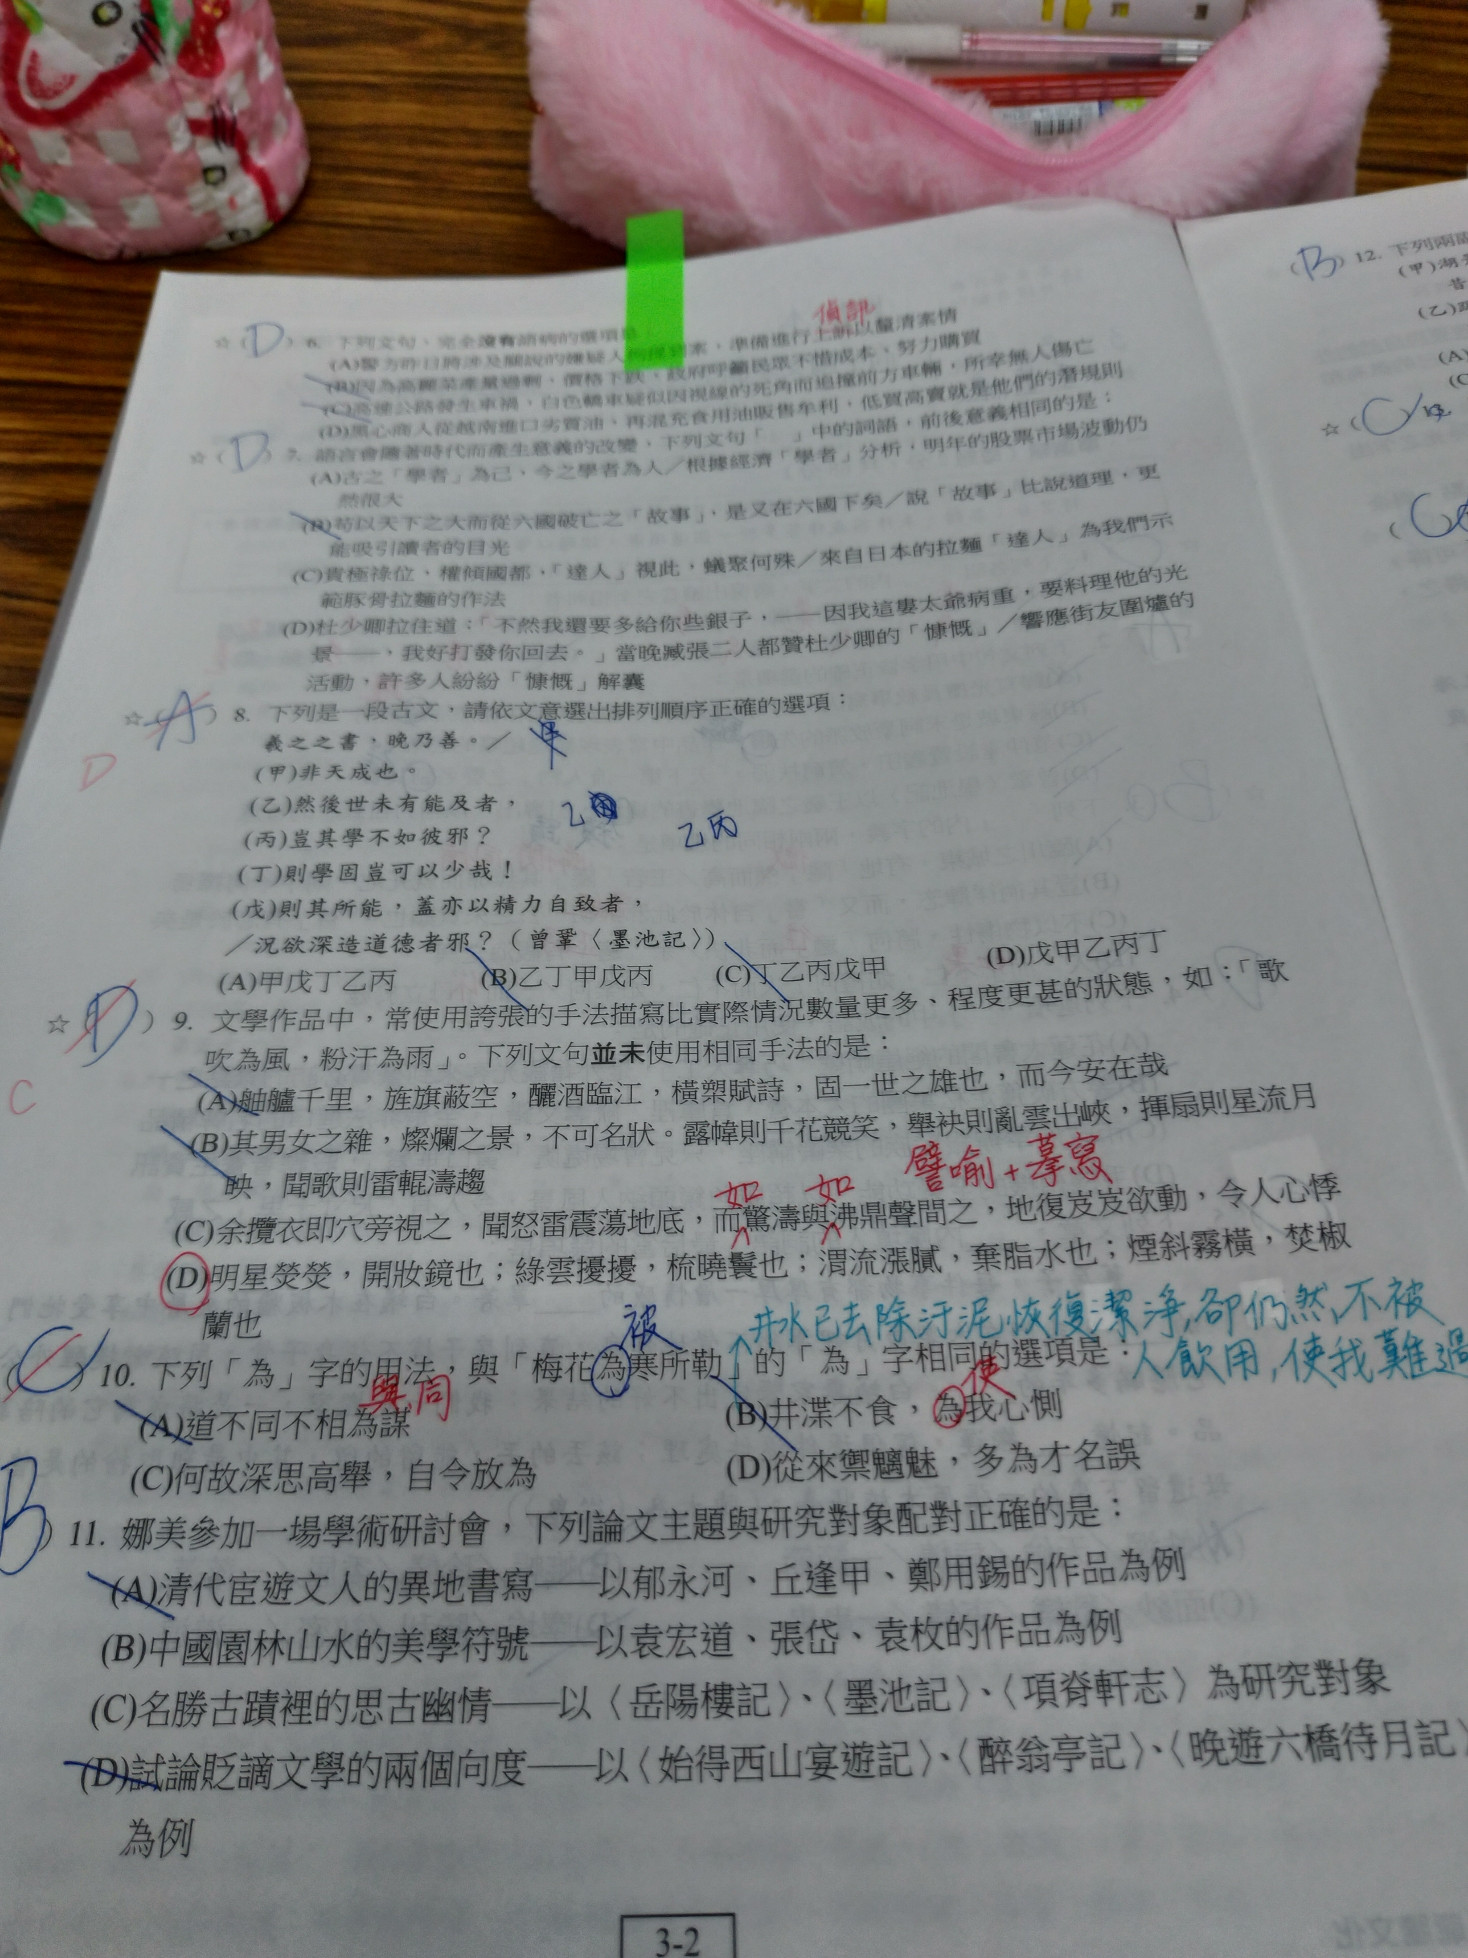 偵訊
☆(D) 6. 下列文句，完全沒有語病的選項是
(A)警方昨日將涉及關說的嫌疑人 案，準備進行上訴以釐清案情
(B)因為高麗菜產量過剩，價格下跌，政府呼籲民眾不惜成本、努力購買
(C)高速公路發生車禍，白色轎車疑似因視線的死角而追撞前方車輛，所幸無人傷亡
(D)黑心商人從越南進口劣質油，再混充食用油販售牟利，低買高賣就是他們的潛規則
☆(D) 7. 語言會隨著時代而產生意義的改變，下列文句「 」中的詞語，前後意義相同的是：
(A)古之「學者」為己，今之學者為人／根據經濟「學者」分析，明年的股票市場波動仍
然很大
(B)苟以天下之大而從六國破亡之「故事」，是又在六國下矣／說「故事」比說道理，更
能吸引讀者的目光
(C)貴極祿位，權傾國都，「達人」視此，蟻聚何殊／來自日本的拉麵「達人」為我們示
範豚骨拉麵的作法
(D)杜少卿拉住道：「不然我還要多給你些銀子，——因我這婁太爺病重，要料理他的光
景——，我好打發你回去。」當晚臧張二人都贊杜少卿的「慷慨」／響應街友圍爐的
活動，許多人紛紛「慷慨」解囊
☆(A) 8. 下列是一段古文，請依文意選出排列順序正確的選項：
D
羲之之書，晚乃善。／
(甲)非天成也。
(乙)然後世未有能及者，
乙
(丙)豈其學不如彼邪？
乙丙
(丁)則學固豈可以少哉！
(戊)則其所能，蓋亦以精力自致者，
／況欲深造道德者邪？（曾鞏〈墨池記〉）
(A)甲戊丁乙丙 (B)乙丁甲戊丙 (C)丁乙丙戊甲 (D)戊甲乙丙丁
☆(D) 9. 文學作品中，常使用誇張的手法描寫比實際情況數量更多、程度更甚的狀態，如：「歌
吹為風，粉汗為雨」。下列文句並未使用相同手法的是：
C
(A)舳艫千里，旌旗蔽空，釃酒臨江，橫槊賦詩，固一世之雄也，而今安在哉
(B)其男女之雜，燦爛之景，不可名狀。露幃則千花競笑，舉袂則亂雲出峽，揮扇則星流月
映，聞歌則雷輥濤趨
如 如 譬喻+摹寫
(C)余攬衣即穴旁視之，聞怒雷震蕩地底，而驚濤與沸鼎聲間之，地復岌岌欲動，令人心悸
(D)明星熒熒，開妝鏡也；綠雲擾擾，梳曉鬟也；渭流漲膩，棄脂水也；煙斜霧橫，焚椒
蘭也
被
井水已去除汙泥恢復潔淨,卻仍然不被
人飲用,使我難過
(C) 10. 下列「為」字的用法，與「梅花為寒所勒」的「為」字相同的選項是：
與,同 使
(A)道不同不相為謀 (B)井渫不食，為我心惻
(C)何故深思高舉，自令放為 (D)從來禦魑魅，多為才名誤
B) 11. 娜美參加一場學術研討會，下列論文主題與研究對象配對正確的是：
(A)清代宦遊文人的異地書寫——以郁永河、丘逢甲、鄭用錫的作品為例
(B)中國園林山水的美學符號——以袁宏道、張岱、袁枚的作品為例
(C)名勝古蹟裡的思古幽情——以〈岳陽樓記〉、〈墨池記〉、〈項脊軒志〉為研究對象
(D)試論貶謫文學的兩個向度——以〈始得西山宴遊記〉、〈醉翁亭記〉、〈晚遊六橋待月記〉
為例
3-2
(B) 12. 下列兩
(甲)湖
昔
(乙)
(A)
(C)
☆(C
(